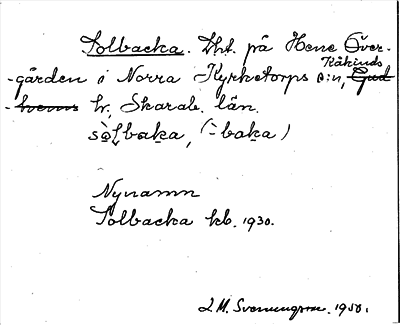 Solbacka. Lht. på Hene Över-
Kåkinds
-gården i Norra Kyrketorps s:n, Gud
-hems hr, Skarab. län.
sòl̥baka, (-baka)
Nynamn
Solbacka kb. 1930.
L M. Svenungsson. 1950.